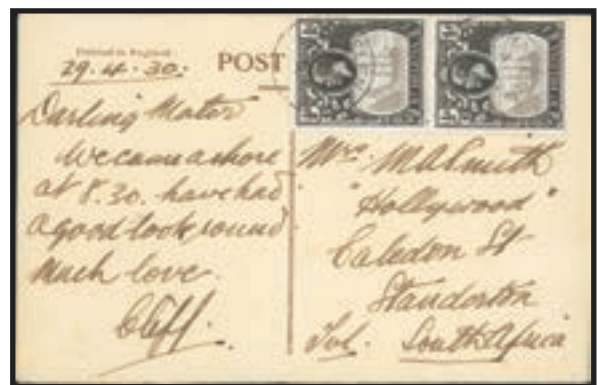 Printed in England
29.4.30:
POST
Darling Mater
We came ashore
at 8.30. have had
a good look round
Much love.
Cliff.
Mrs. M A Smith
"Hollywood"
Caledon St
Standerton
Tvl. South Africa